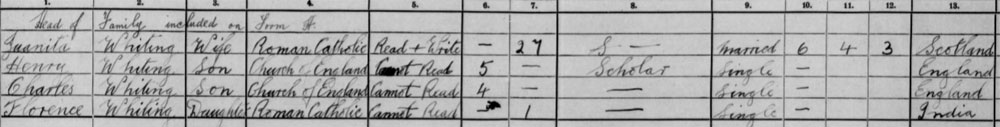 1. 2. 3. 4. 5. 6. 7. 8. 9. 10. 11. 12. 13.
Head of Family included on Form A
Juanita Whiting Wife Roman Catholic Read + Write — 27 — Married 6 4 3 Scotland
Henry Whiting Son Church of England Cannot Read 5 — Scholar Single — England
Charles Whiting Son Church of England Cannot Read 4 — — Single — England
Florence Whiting Daughter Roman Catholic Cannot Read 1 — Single — India